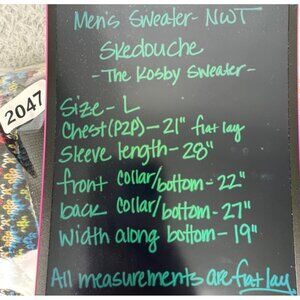 Men's Sweater- NWT
Skedouche
- The Kosby Sweater -
2047
Size - L
Chest (P2P) - 21" flat lay
Sleeve length - 28"
front collar/bottom - 22"
back collar/bottom - 27"
Width along bottom - 19"
All measurements are flat lay